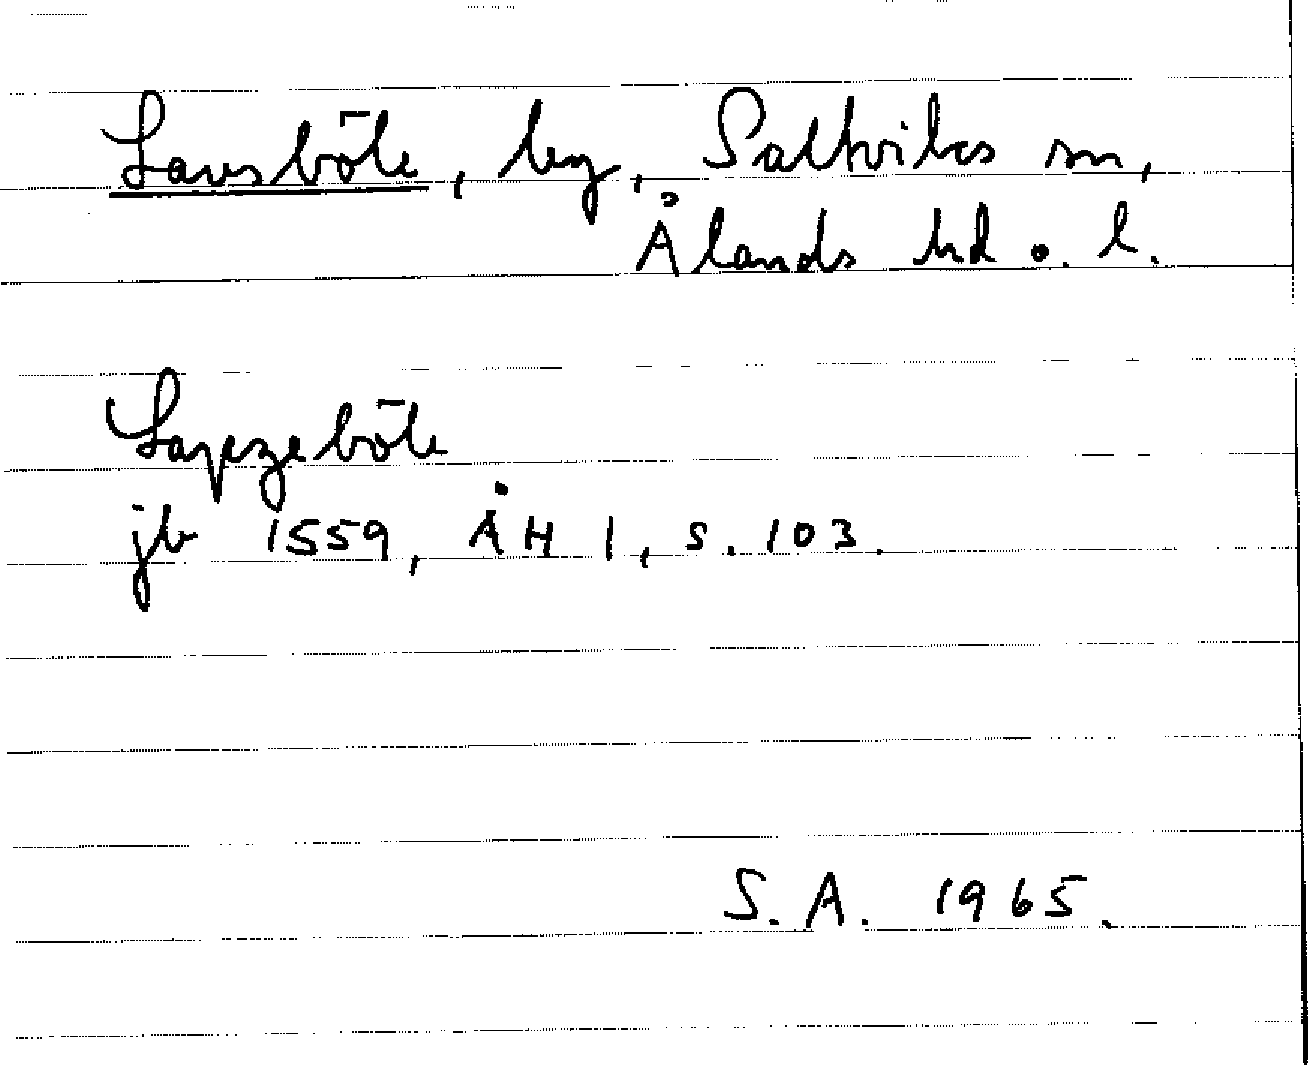 Lavsböle, by, Saltviks sn,
Ålands hd o. l.
jb 1559, ÅH 1, s. 103.
S. A. 1965.